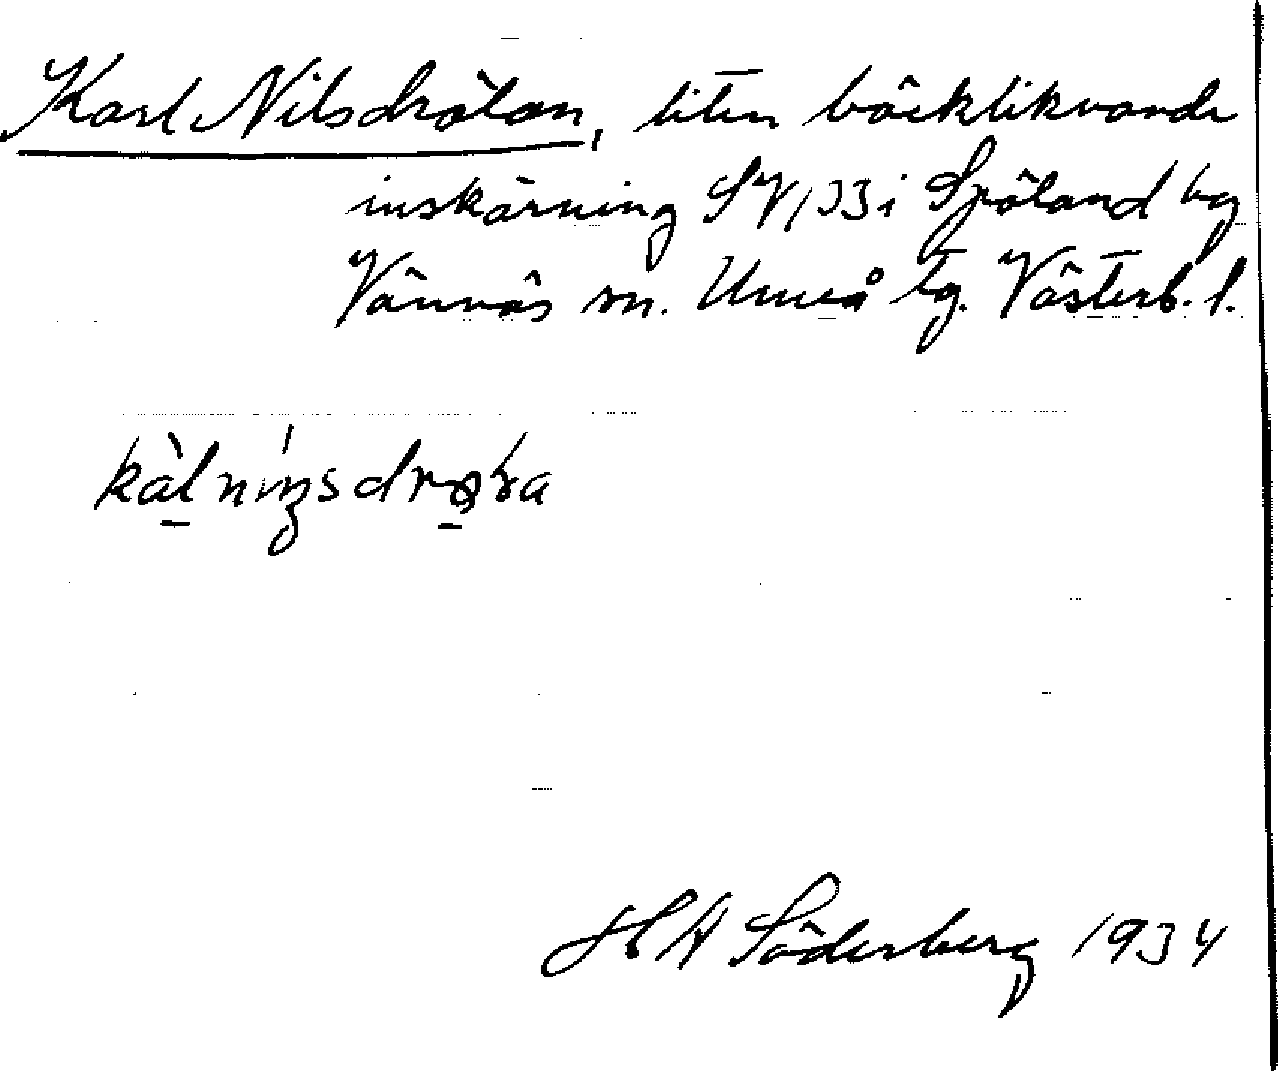 Karl Nilsdrölan, liten bäckliknande
inskärning SV/33 i Spöland by
Vännäs sn. Umeå tg. Västerb. l.
kàlníŋsdrøʹɽa
H A Söderberg 1934